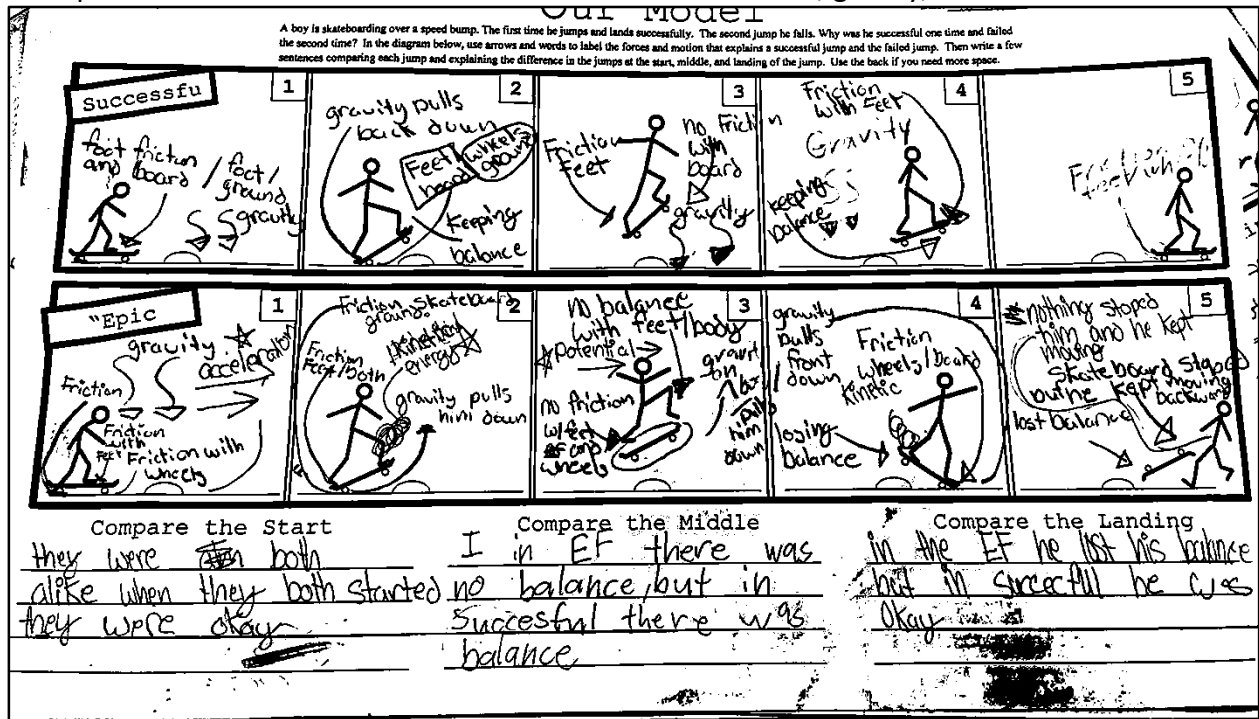 Our Model
A boy is skateboarding over a speed bump. The first time he jumps and lands successfully. The second jump he falls. Why was he successful one time and failed
the second time? In the diagram below, use arrows and words to label the forces and motion that explains a successful jump and the failed jump. Then write a few
sentences comparing each jump and explaining the difference in the jumps at the start, middle, and landing of the jump. Use the back if you need more space.
Successfu
1
foot friction
and board
/ foot/
ground
gravity
2
gravity pulls
back down
Feet/
board
wheels
ground
Keeping
balance
3
Friction
Feet
no friction
with
board
gravity
4
Friction
with Feet
Gravity
keeping
balance
5
"Epic
1
gravity
acceleration
Friction
Friction
with
FEET
Friction with
wheels
2
Friction skateboard
ground
Friction
Feet/both
kinetic
energy
gravity pulls
him down
3
no balance
with feet/body
Potential
no friction
w/feet
and
wheels
pull
him
down
4
gravity
pulls
front
/ down
Friction
wheels/board
kinetic
losing
balance
5
nothing stoped
him and he kept
moving
skateboard stoped
but he kept moving
backward
lost balance
Compare the Start
they were both
alike when they both started
they were okay
Compare the Middle
I in EF there was
no balance, but in
Succesful there was
balance
Compare the Landing
in the EF he lost his balance
but in succecfull he was
Okay